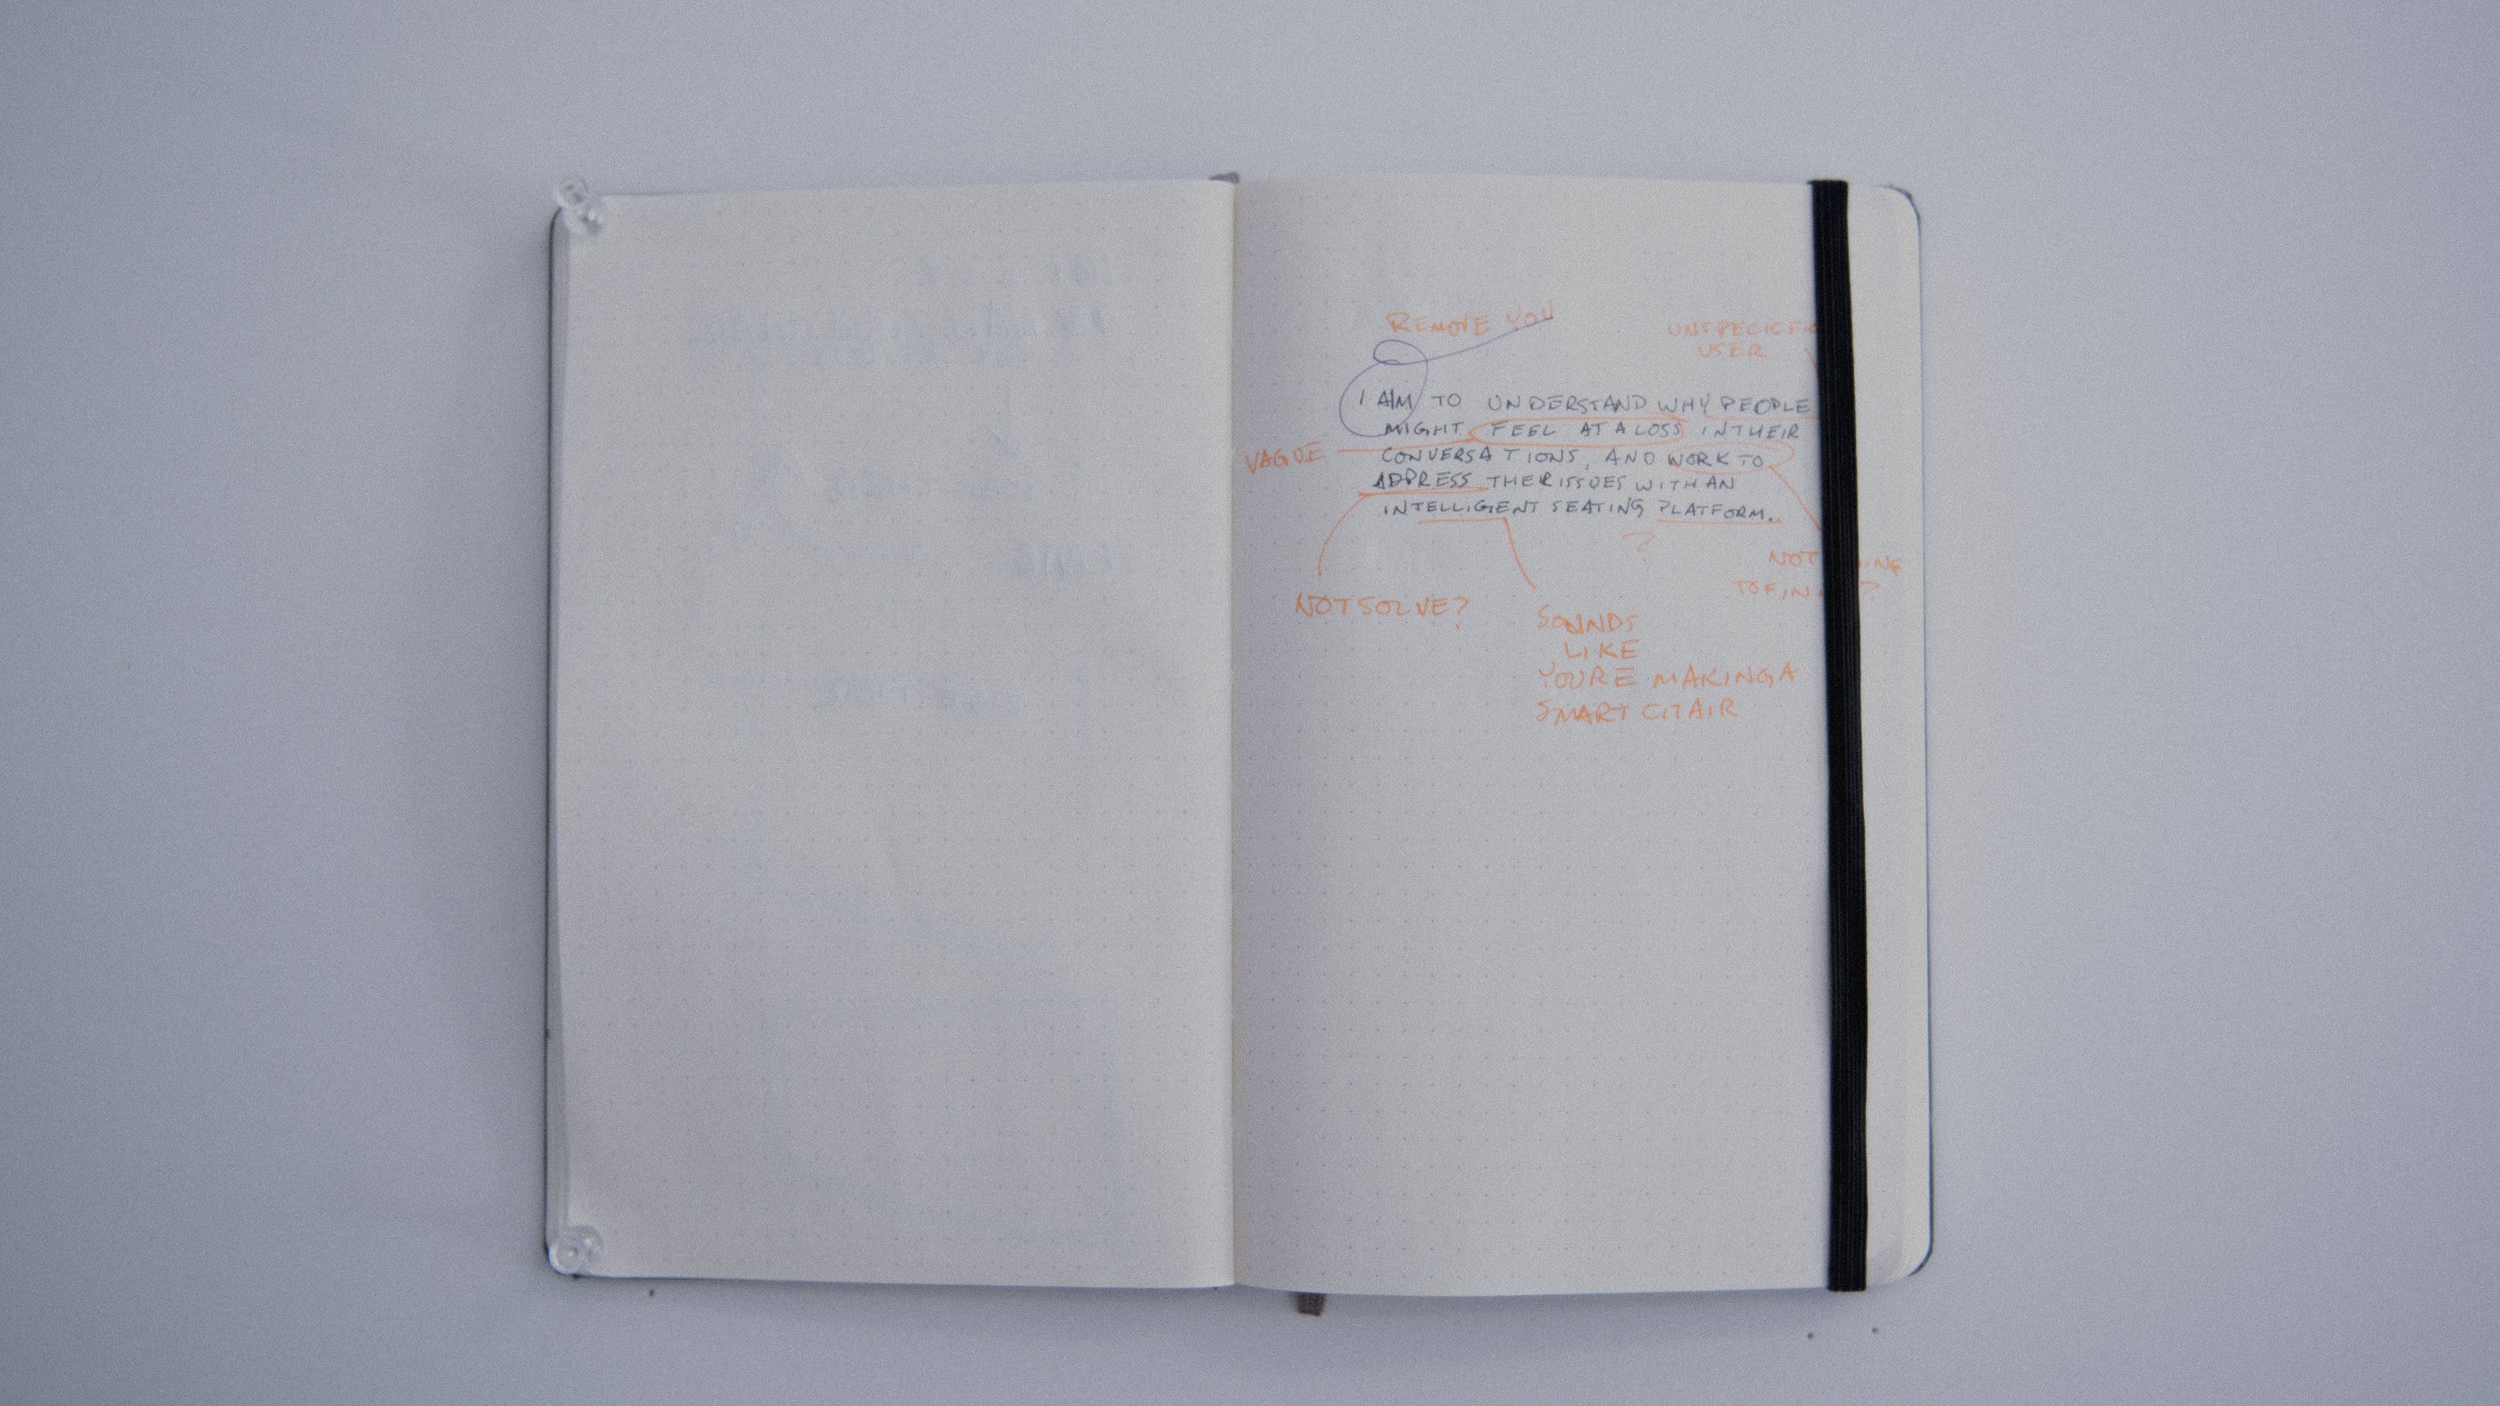 REMOVE YOU
USER
I AIM TO UNDERSTAND WHY PEOPLE
MIGHT FEEL AT A LOSS IN THEIR
VAGUE
CONVERSATIONS, AND WORK TO
ADDRESS THER ISSUES WITH AN
INTELLIGENT SEATING PLATFORM.
?
NOT
NOT SOLVE?
SOUNDS
LIKE
YOURE MAKING A
SMART CHAIR